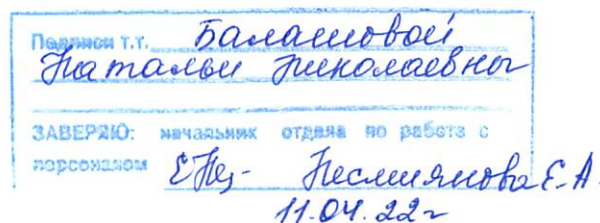 Подписи т.т. Балашовой
Натальи Николаевны
ЗАВЕРЯЮ: начальник отдела по работе с
персоналом Несмиянова Е.А.
11.04.22г